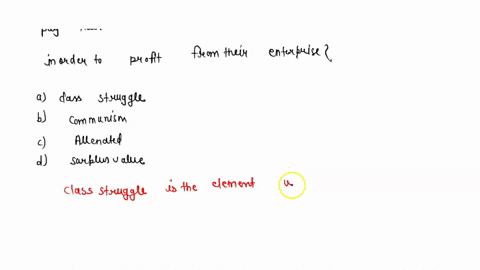 in order to profit from their enterprise {
a) class struggle
b) Communism
c) Allenated
d) surplus value
class struggle is the element